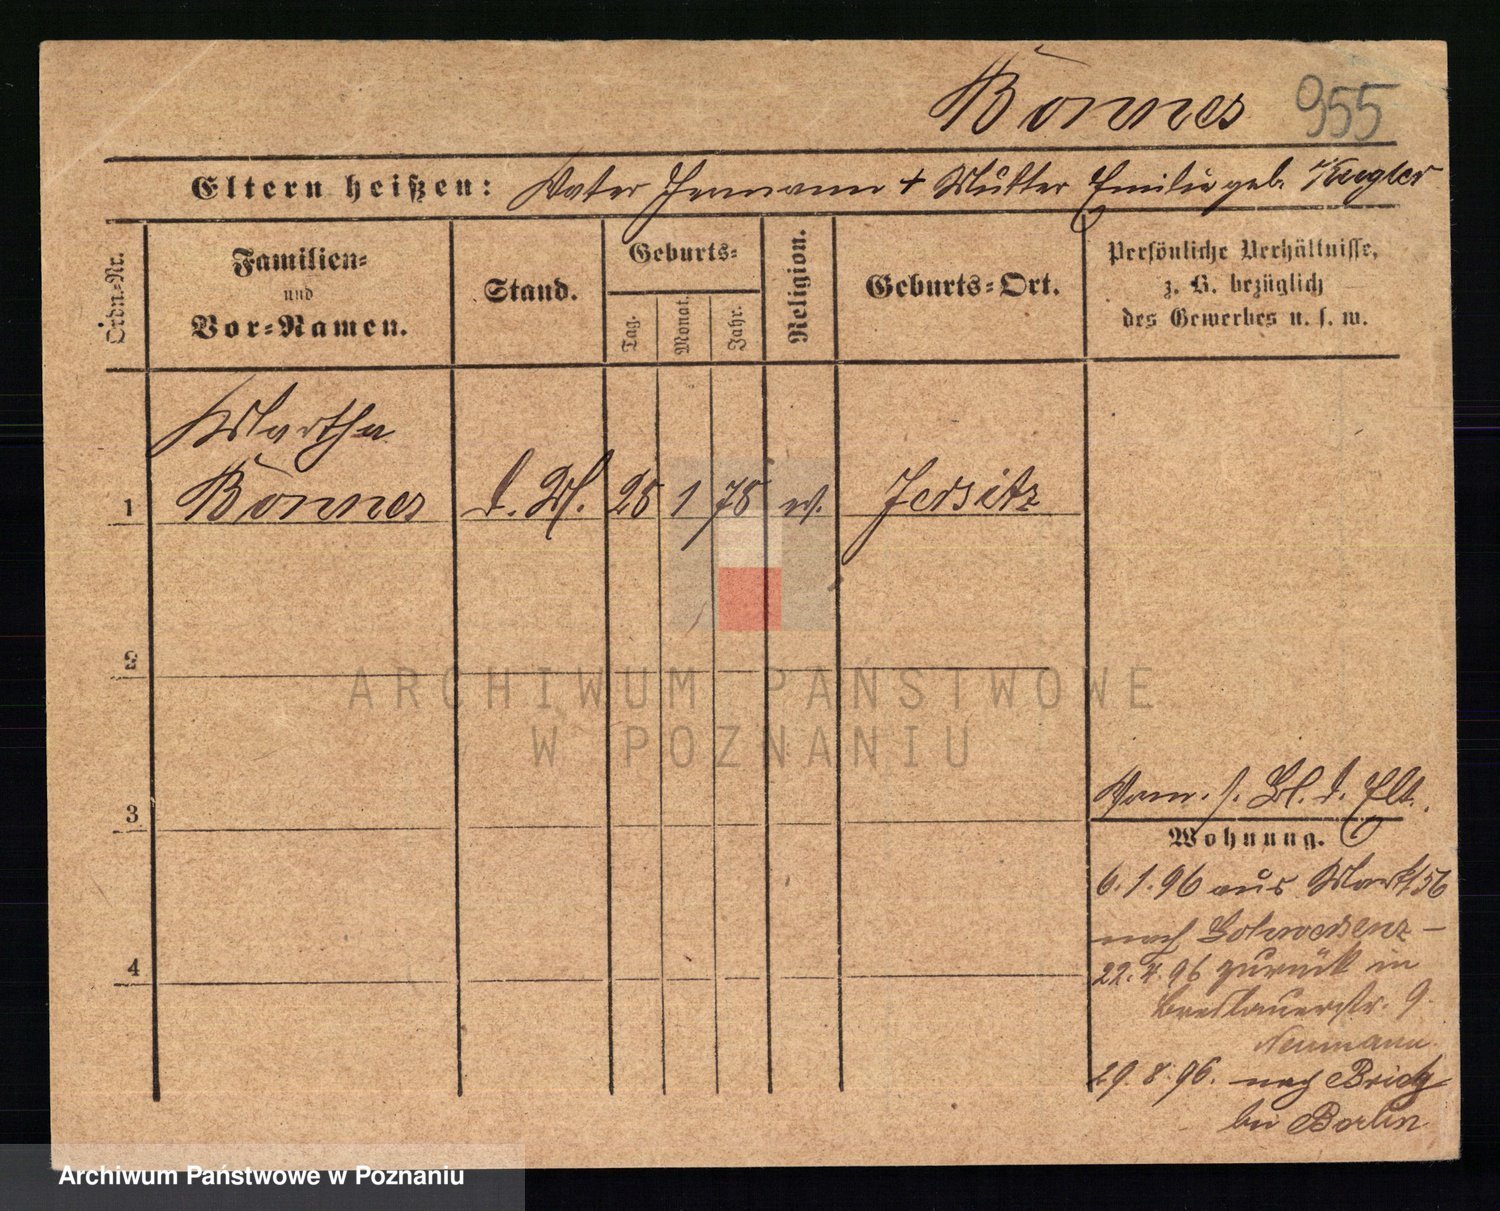 Bonnes 955
Eltern heißen: Vater Hermann + Mutter Emilie geb. Kugler
Ordn.-Nr.
Familien-
und
Vor-Namen.
Stand.
Geburts-
Tag.
Monat.
Jahr.
Religion.
Geburts-Ort.
Persönliche Verhältnisse,
z. B. bezüglich
des Gewerbes u. s. w.
Martha
1 Bonnes d. M. 25 1 78 ev. Jersitz
2
3
4
Verm. s. Bl. d. Elt.
Wohnung.
6.1.96 aus Markt 56
nach
22.4.96 zurück in
Breslauerstr. 9.
Neumann
29.8.96. nach Britz
bei Berlin
ARCHIWUM PAŃSTWOWE
W POZNANIU
Archiwum Państwowe w Poznaniu